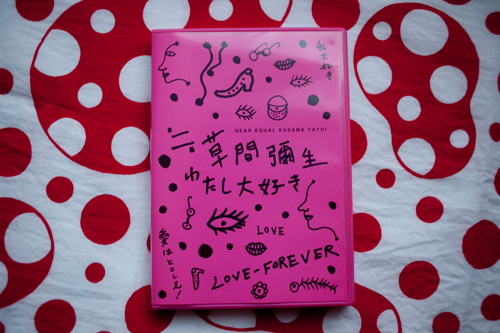 私大好き
NEAR EQUAL KUSAMA YAYOI
≒草間彌生
わたし大好き
LOVE
愛はとこしえ!
LOVE-FOREVER